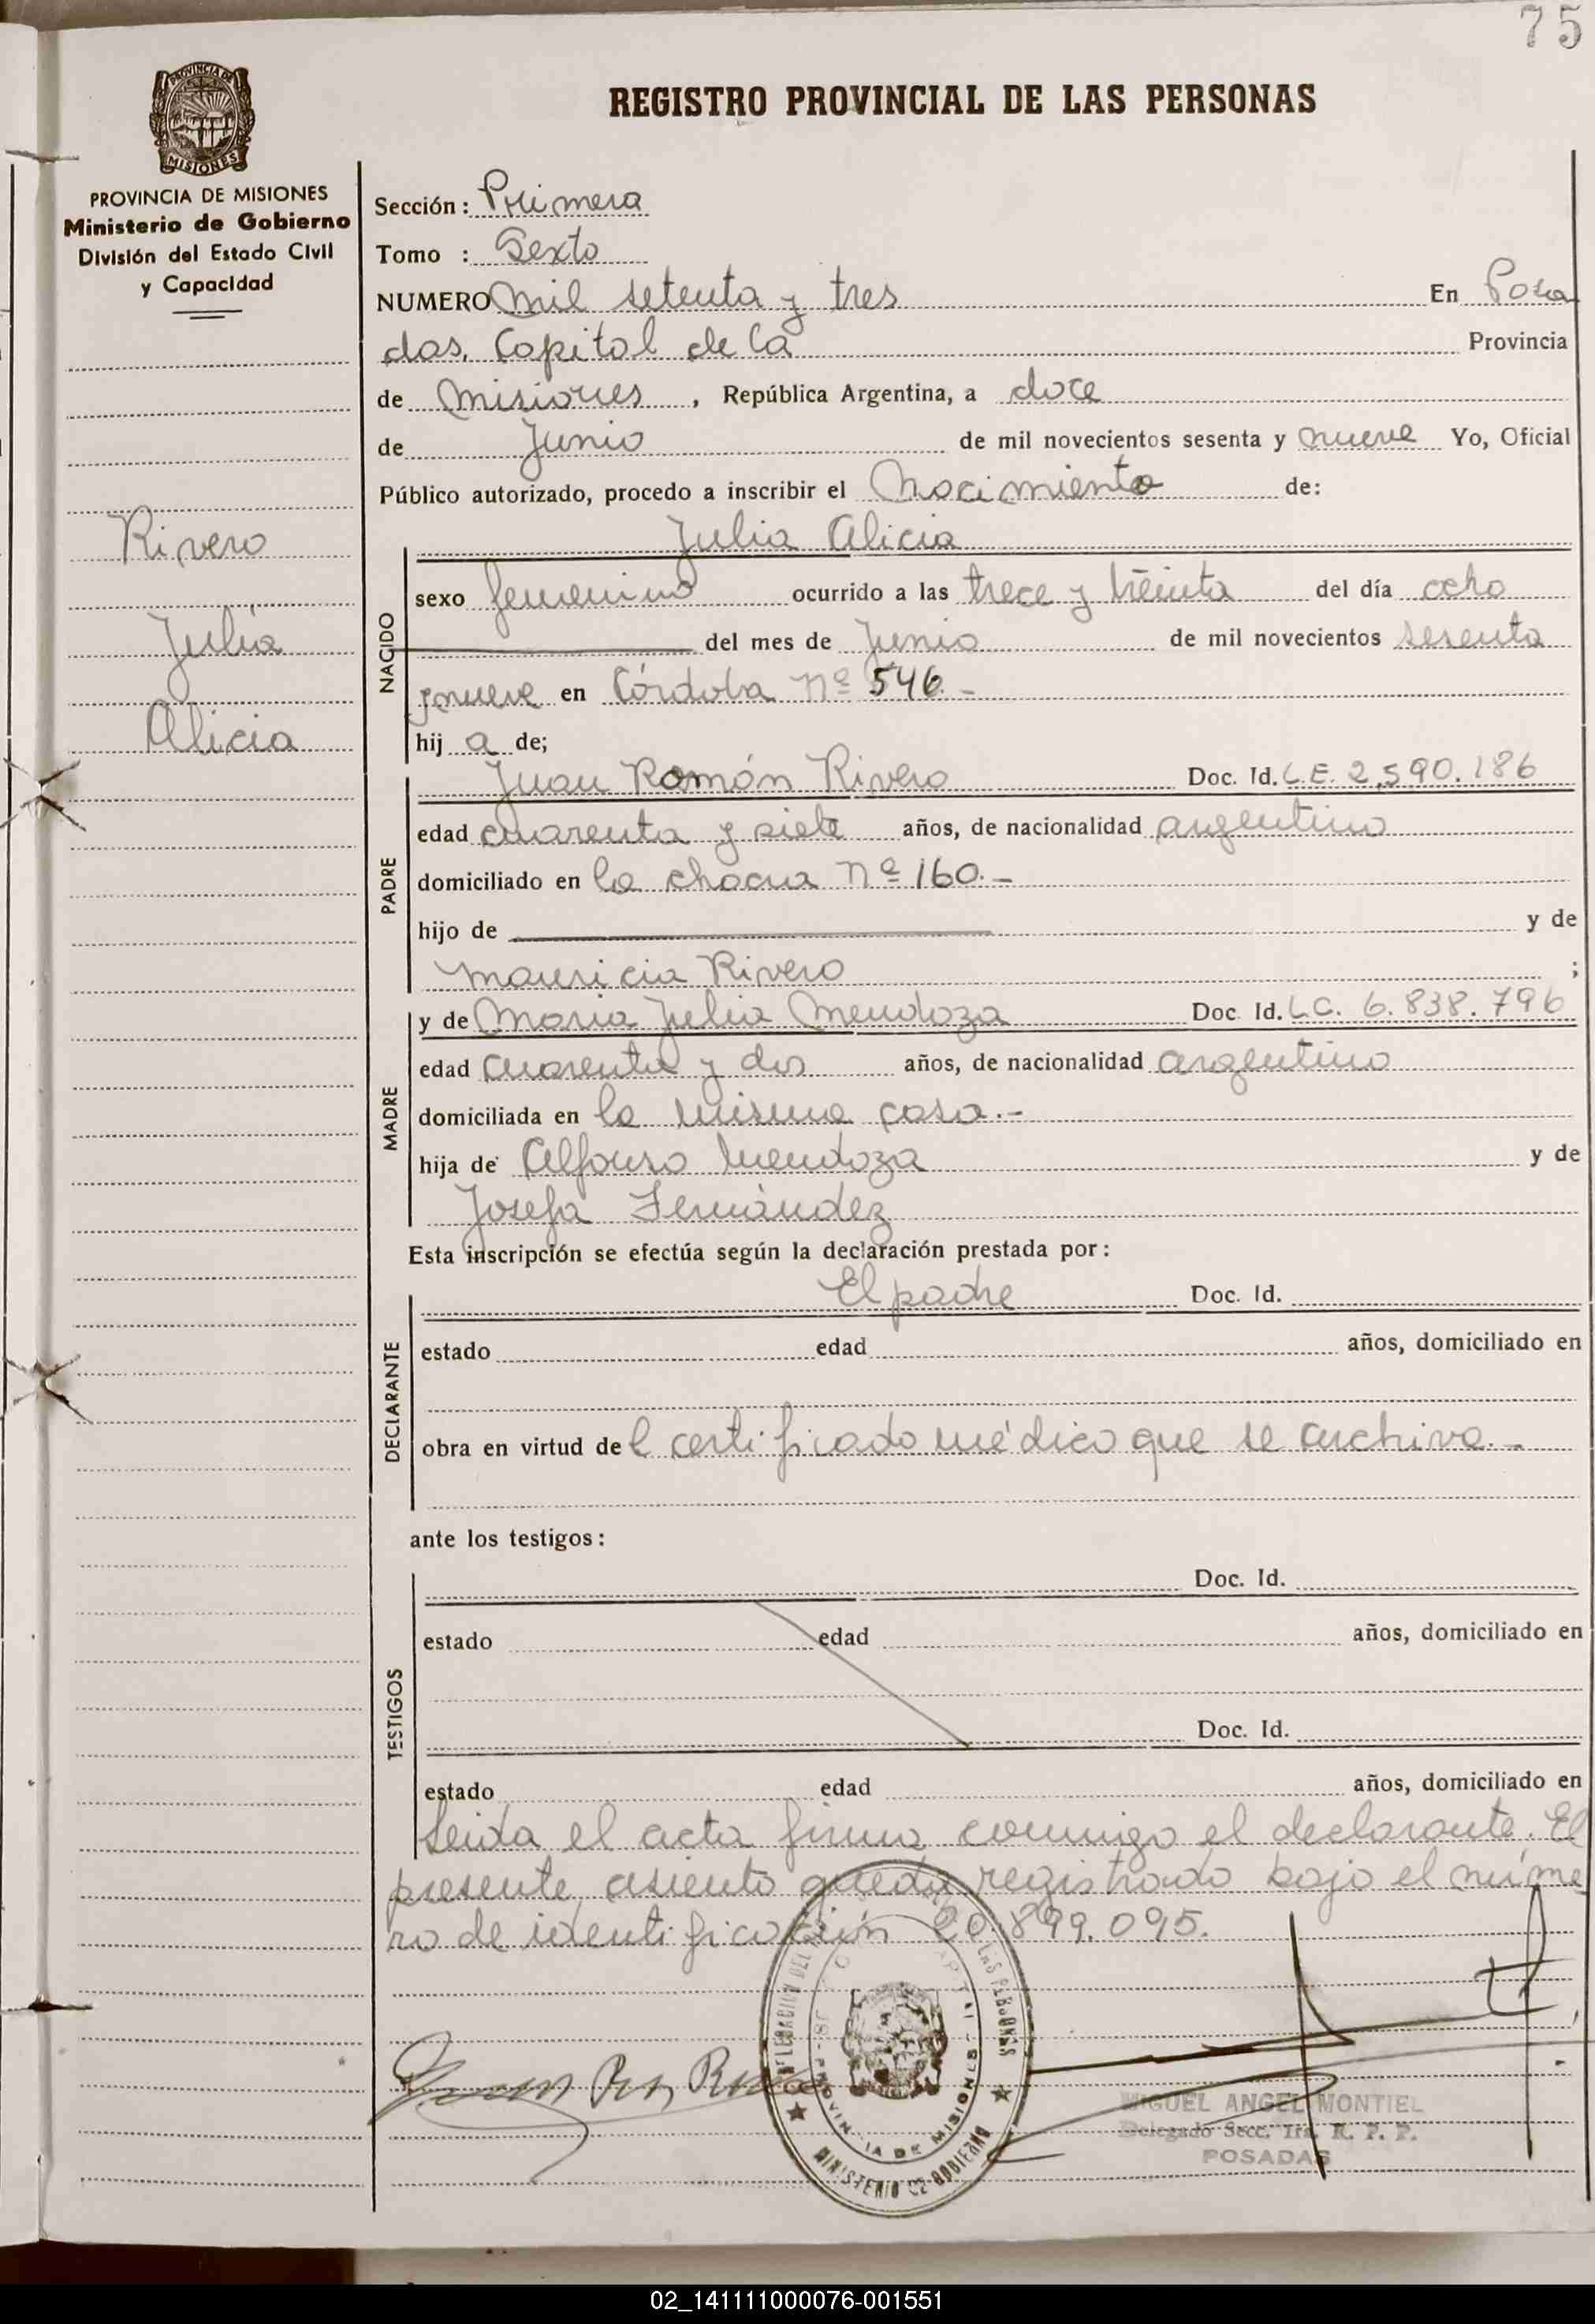 75
PROVINCIA DE
MISIONES
REGISTRO PROVINCIAL DE LAS PERSONAS
PROVINCIA DE MISIONES
Ministerio de Gobierno
División del Estado Civil
y Capacidad
Rivero
Julia
Alicia
Sección: Primera
Tomo : Sexto
NUMERO mil setenta y tres En Posa
das, Capital de la Provincia
de Misiones, República Argentina, a doce
de Junio de mil novecientos sesenta y nueve Yo, Oficial
Público autorizado, procedo a inscribir el Nacimiento de:
Julia Alicia
NACIDO
sexo femenino ocurrido a las trece y treinta del día ocho
del mes de Junio de mil novecientos sesenta
y nueve en Córdoba Nº 546.-
hij a de;
Juan Román Rivero Doc. Id. L.E. 2,590.186
PADRE
edad cuarenta y siete años, de nacionalidad argentino
domiciliado en la chacra Nº 160.-
hijo de y de
Mauricia Rivero ;
y de Maria Julia Mendoza Doc. Id. L.C. 6.838.796
MADRE
edad cuarenta y dos años, de nacionalidad argentino
domiciliada en la misma casa.-
hija de Alfonso Mendoza y de
Josefa Fernández
Esta inscripción se efectúa según la declaración prestada por:
El padre Doc. Id.
DECLARANTE
estado edad años, domiciliado en
obra en virtud del certificado médico que se archiva.-
ante los testigos:
Doc. Id.
TESTIGOS
estado edad años, domiciliado en
Doc. Id.
estado edad años, domiciliado en
Leida el acta firma conmigo el declarante. El
presente asiento queda registrado bajo el núme
ro de identificación 20.899.095.
LAS PERSONAS
PROVINCIA DE MISIONES
MINISTERIO DE GOBIERNO
MIGUEL ANGEL MONTIEL
Delegado Secc. 1ra. R. P. P.
POSADAS
02_141111000076-001551